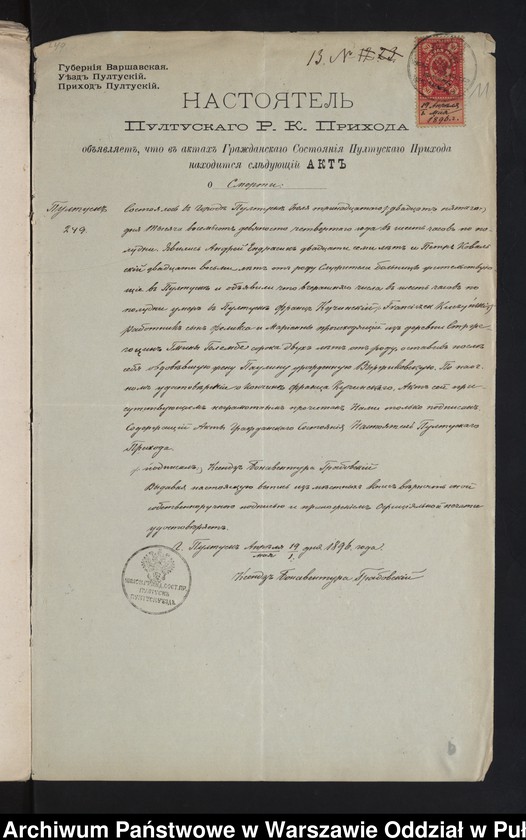 Губернія Варшавская.
Уѣздъ Пултускій.
Приходъ Пултускій.
13. №
19 Апрѣля
1 Мая
1896 г.
11
НАСТОЯТЕЛЬ
ПУЛТУСКАГО Р. К. ПРИХОДА
объявляетъ, что въ актахъ Гражданскаго Состоянія Пултускаго Прихода
находится слѣдующій АКТЪ
о Смерти:
Пултускъ
249.
Состоялось въ городѣ Пултускѣ тринадцатаго / двадцать пятаго /
дня тысяча восемьсотъ девяносто четвертаго года въ шесть часовъ по по-
лудни. Явились Андрей двадцати семи лѣтъ и Петръ Коваль-
скій двадцати восьми лѣтъ отъ роду больницы жительствую-
щіе въ Пултускѣ и объявили что вчерашняго числа въ шесть часовъ по
полудни умеръ въ Пултускѣ Францъ Кучинскій
работникъ сынъ Феликса и Маріанны происходящій изъ деревни
Гмины сорока двухъ лѣтъ отъ роду, оставивъ послѣ
себя овдовѣвшую жену Паулину урожденную По наоч-
номъ удостовѣреніи о кончинѣ Франца Кучинскаго, Актъ сей при-
сутствующимъ неграмотнымъ прочитанъ Нами только подписанъ
Содержащій Акты Гражданскаго Состоянія Настоятель Пултускаго
Прихода
/подписалъ/ Ксендзъ Бонавентура Грабовскій
Выдавая настоящую выпись изъ мѣстныхъ книгъ вѣрность оной
собственноручною подписью и приложеніемъ оффиціальной печати
удостовѣряетъ.
Г. Пултускъ Апрѣля 19 дня 1896 года.
мая 1
Ксендзъ Бонавентура Грабовскій
Archiwum Państwowe w Warszawie Oddział w Puł